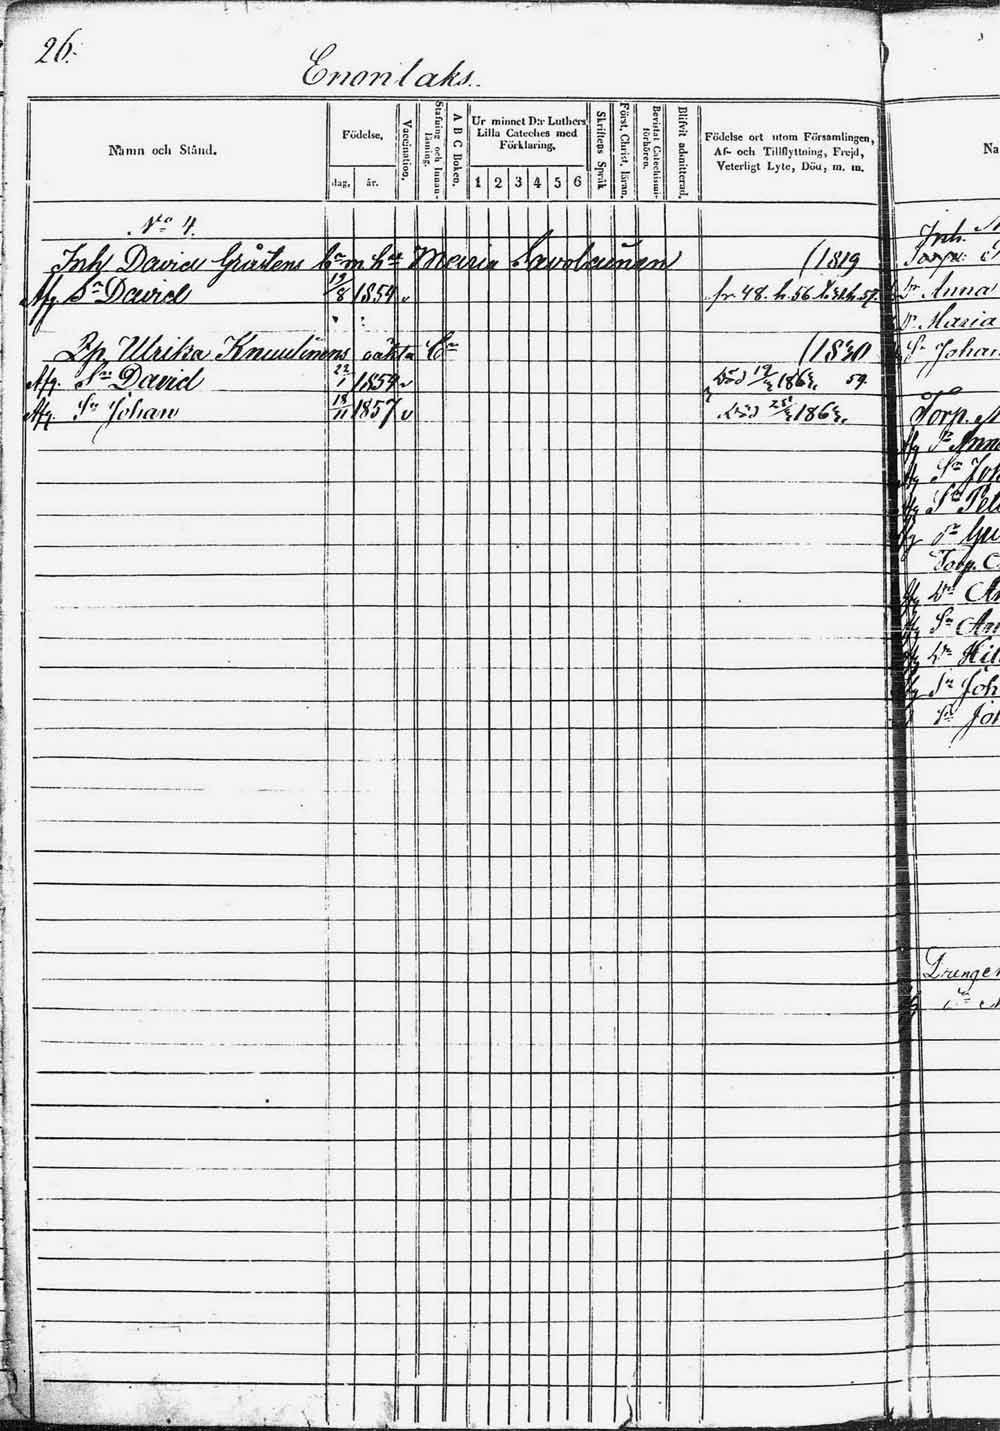 26.
Enonlaks.
Namn och Stånd.
Födelse,
dag. år.
Vaccination.
Stafning och Innanläsning.
A B C Boken.
Ur minnet D:r Luthers
Lilla Cateches med
Förklaring.
1 2 3 4 5 6
Skriftens Språk
Först. Christ. läran.
Bevistat Catechismiförhören.
Blifvit admitterad.
Födelse ort utom Församlingen,
Af- och Tillflyttning, Frejd,
Veterligt Lyte, Död, m. m.
Na
No 4.
Inh. David Gråstens bn m h Maria Savolainen (1819
Afg Sn David 19/8 1854 v fr. 48. h. 56
Pp. Ulrika Knuutinens oäkta Bn (1830
Afg. Sn David 22/1 1854 v Död 186 59.
Afg. Sn Johan 18/11 1857 v Död 186
Inh.
Torp.
Dr Anna
Dr Maria
Sn Johan
Torp.
Afg Dr Anna
Afg Sn Joh
Afg Sn Pet
Torp.
Afg Dr
Afg Sn
Afg Dr Hil
Afg Sn Joh
Sn Joh
Drengen